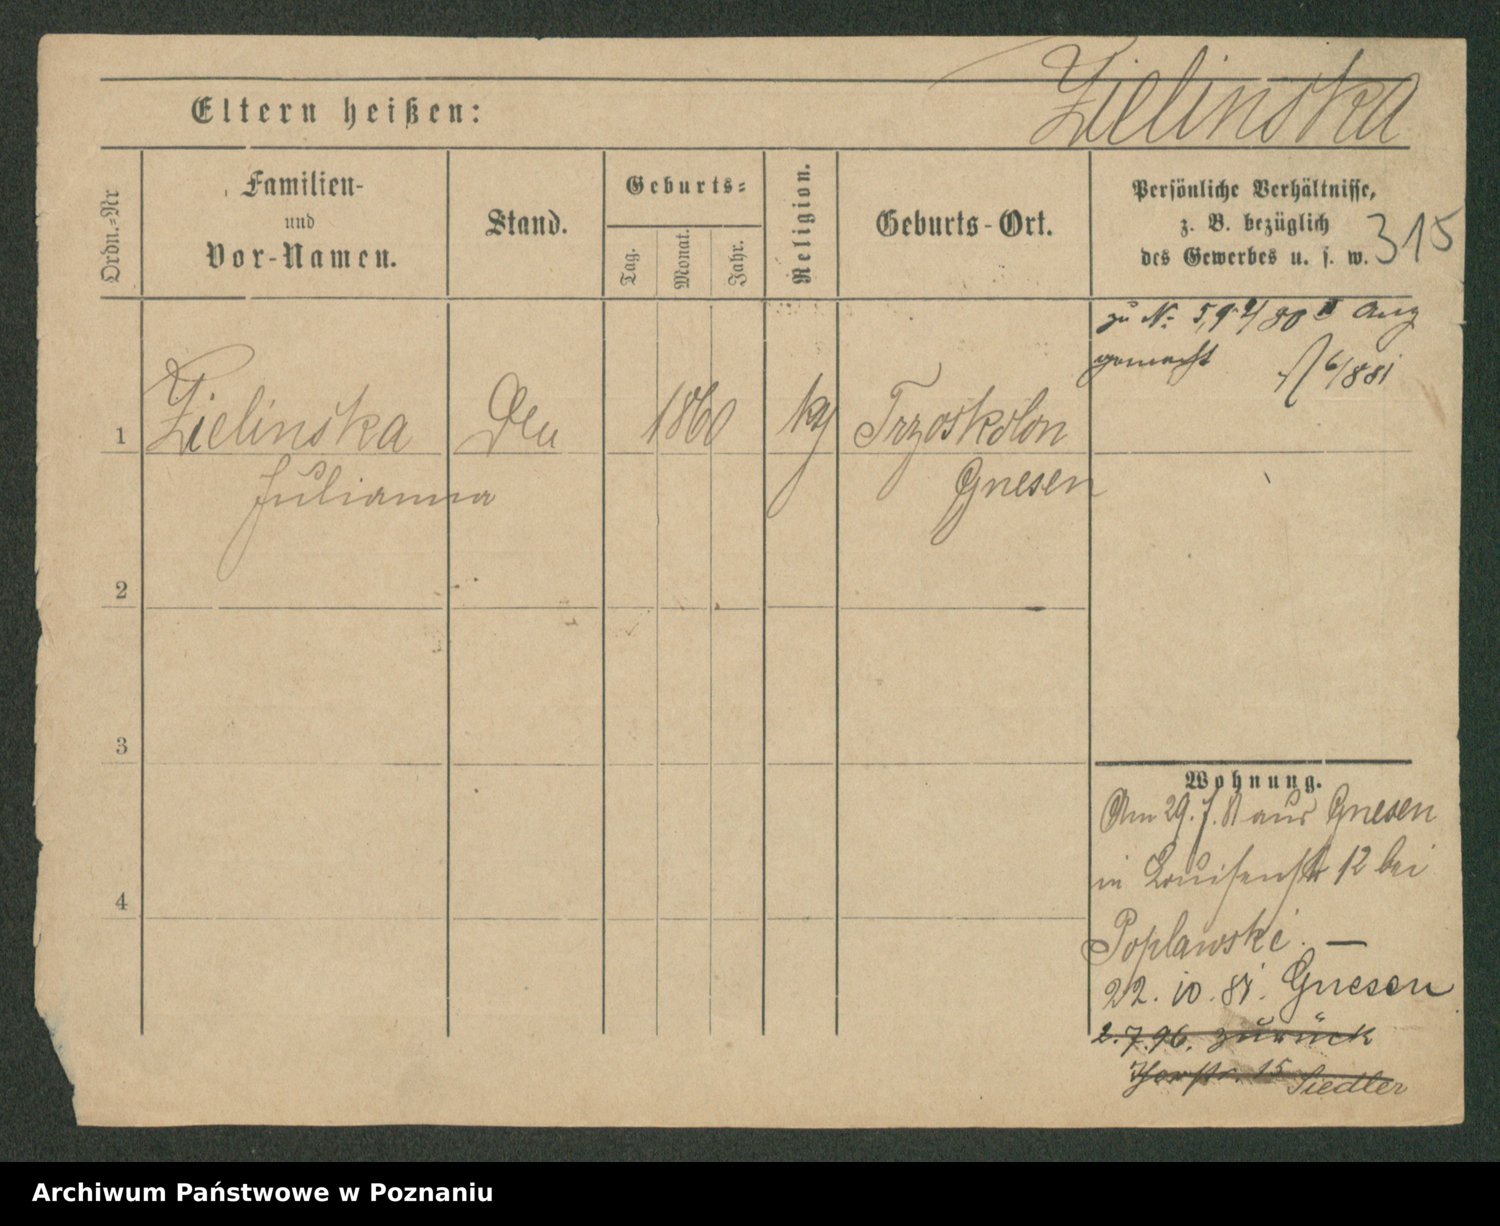 Zielinska
Eltern heißen:
Ordn.-Nr
Familien-
und
Vor-Namen.
Stand.
Geburts-
Tag.
Monat.
Jahr.
Religion.
Geburts-Ort.
Persönliche Verhältnisse,
z. B. bezüglich
des Gewerbes u. s. w.
315
zu No 80 II Ang
gemacht 6/881
1 Zielinska 1860 Trzoskolon
Julianna Gnesen
2
3
4
Wohnung.
Am 29. 7. 81 aus Gnesen
in Louisenstr 12 bei
Poplawski. —
22. 10. 81. Gnesen
2.7.96. zurück
15 Siedler
Archiwum Państwowe w Poznaniu